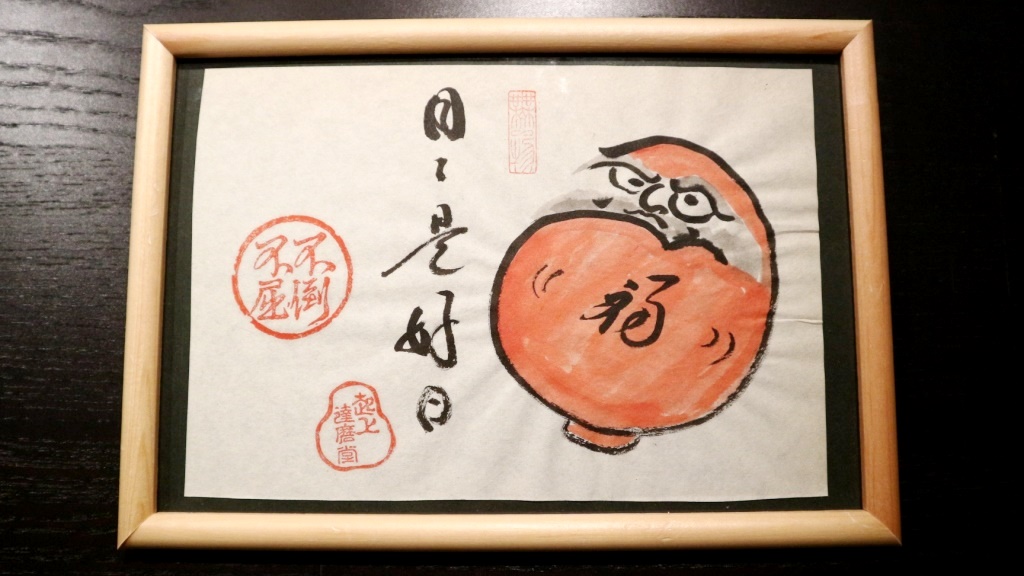 福
日々是好日
不倒
不屈
起上
達磨堂